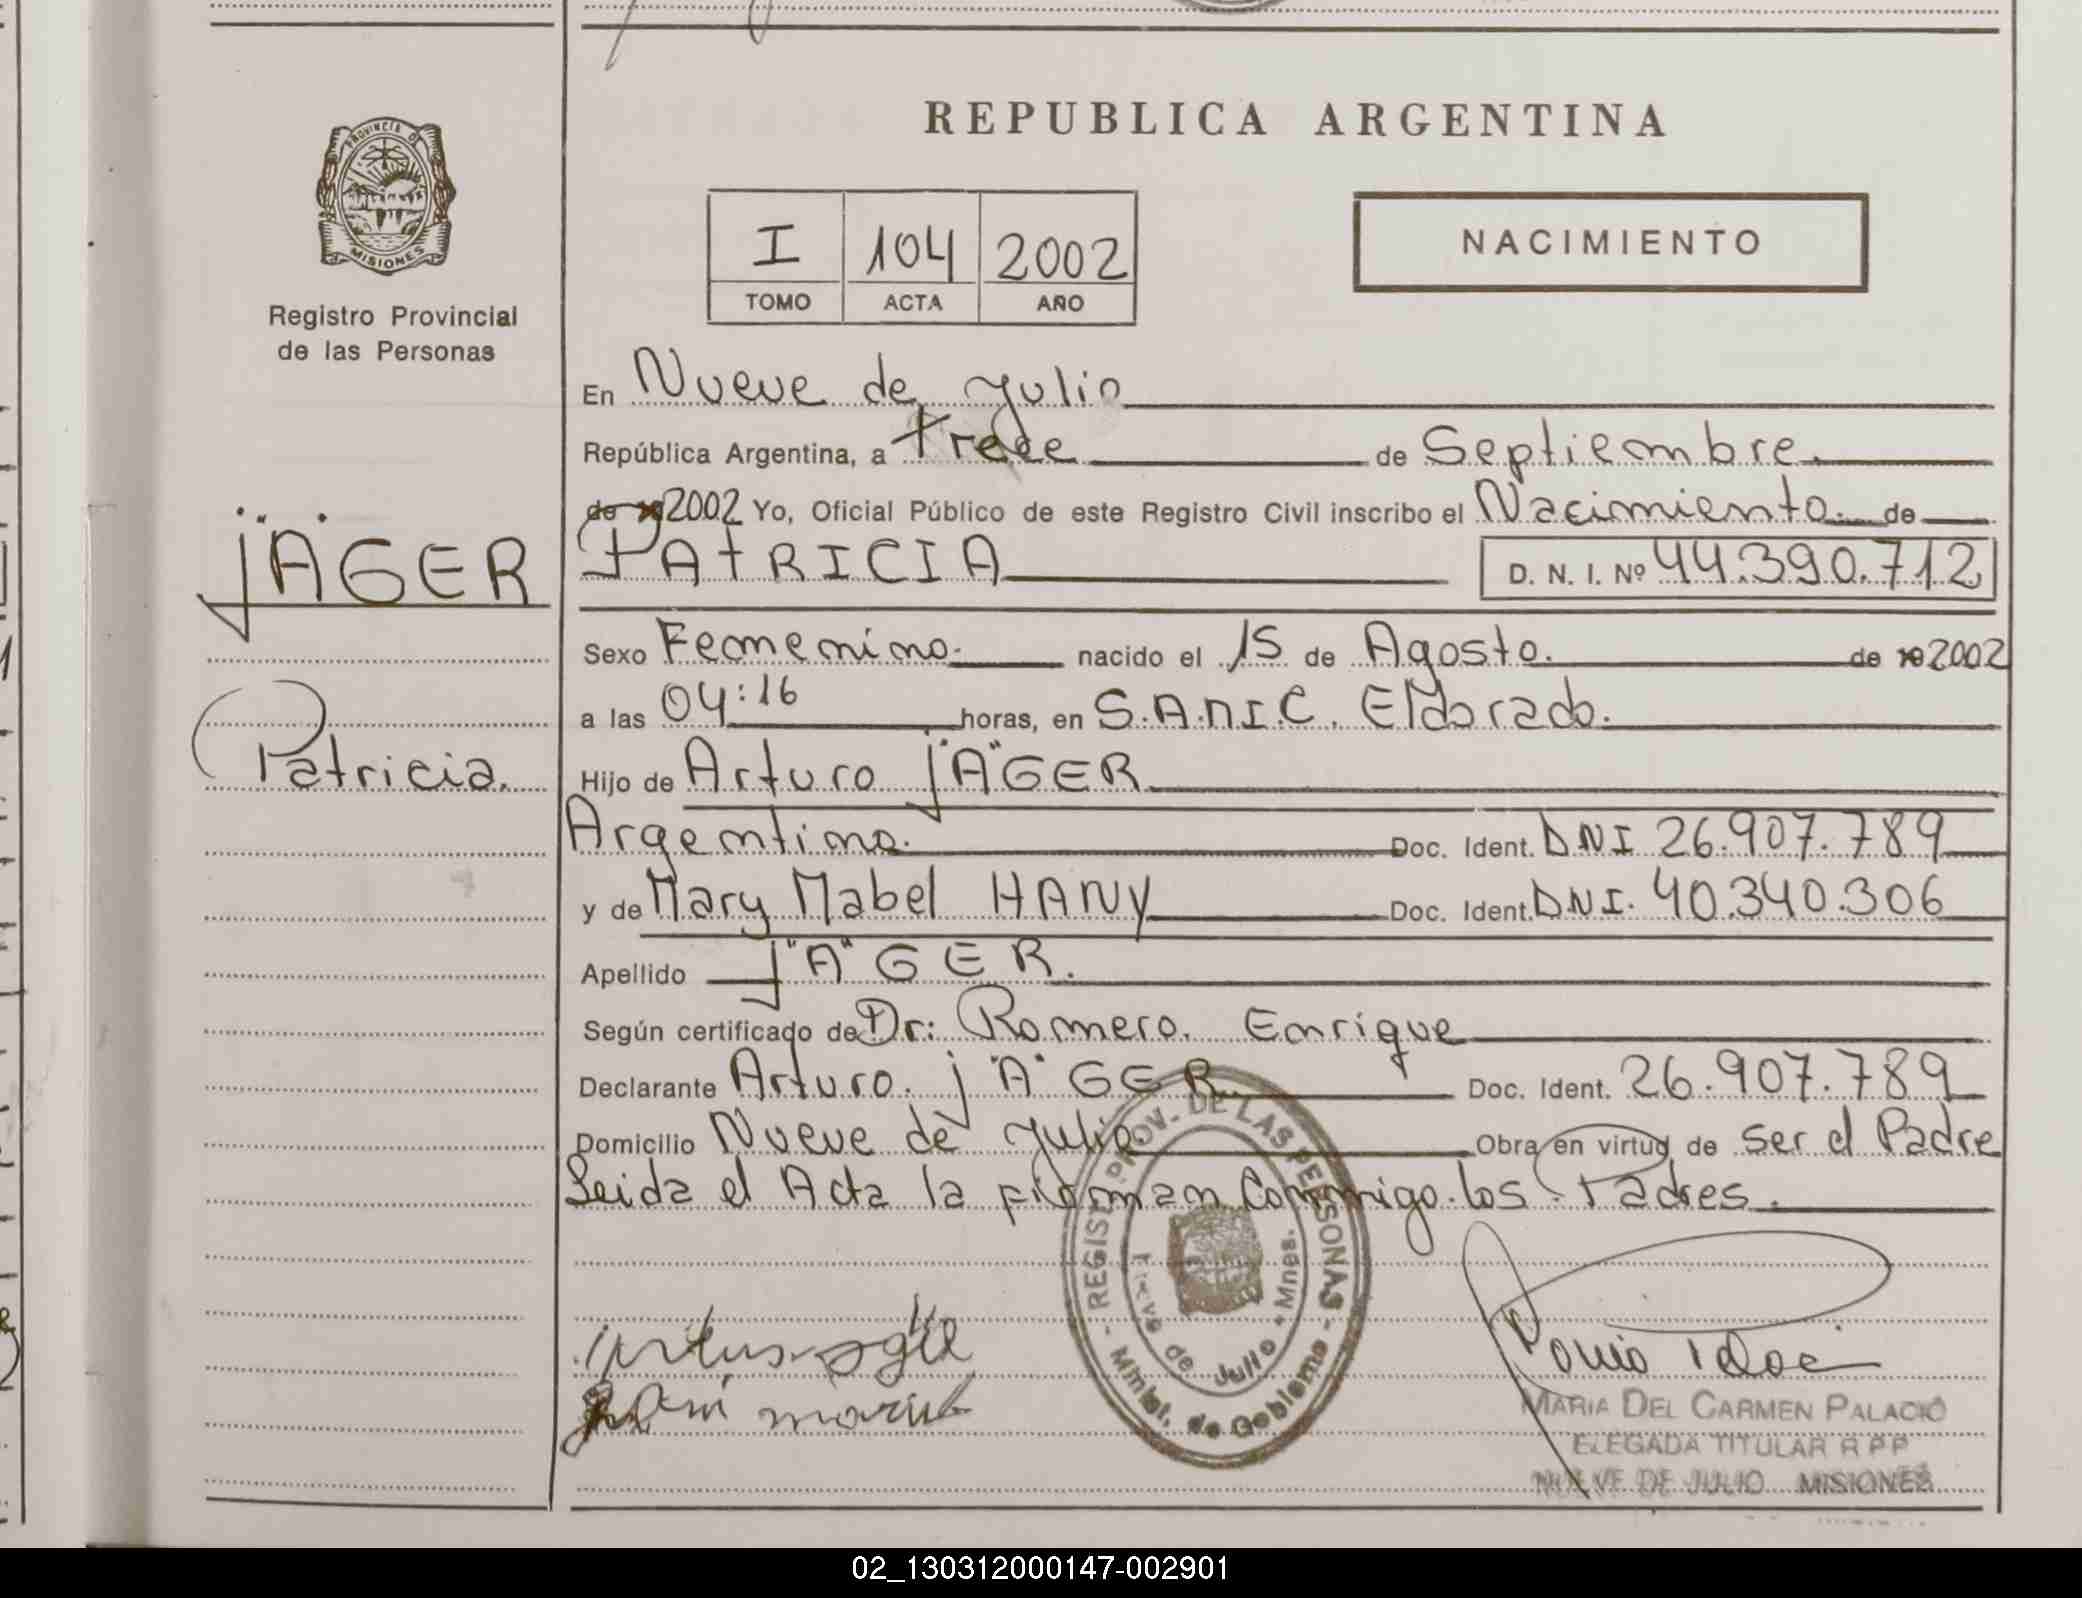 REPUBLICA ARGENTINA
PROVINCIA DE MISIONES
Registro Provincial
de las Personas
I 104 2002
TOMO ACTA AÑO
NACIMIENTO
JÄGER
Patricia.
En Nueve de Julio
República Argentina, a trece de Septiembre.
de 2002 Yo, Oficial Público de este Registro Civil inscribo el Nacimiento. de
PATRICIA D. N. I. Nº 44.390.712
Sexo Femenino. nacido el 15 de Agosto. de 2002
a las 04:16 horas, en S.A.M.I.C. Eldorado.
Hijo de Arturo JÄGER
Argentino. Doc. Ident. DNI 26.907.789
y de Mary Mabel HANY Doc. Ident. DNI. 40.340.306
Apellido JÄGER.
Según certificado de Dr: Romero. Enrique
Declarante Arturo. JÄGER Doc. Ident. 26.907.789
Domicilio Nueve de Julio. Obra en virtud de ser el Padre
Leida el Acta la firman Conmigo los Padres.
- REGIST. PROV. DE LAS PERSONAS -
Minist. de Gobierno
Nueve de Julio - Mnes.
MARIA DEL CARMEN PALACIO
ELEGADA TITULAR R P P
NUEVE DE JULIO MISIONES
02_130312000147-002901